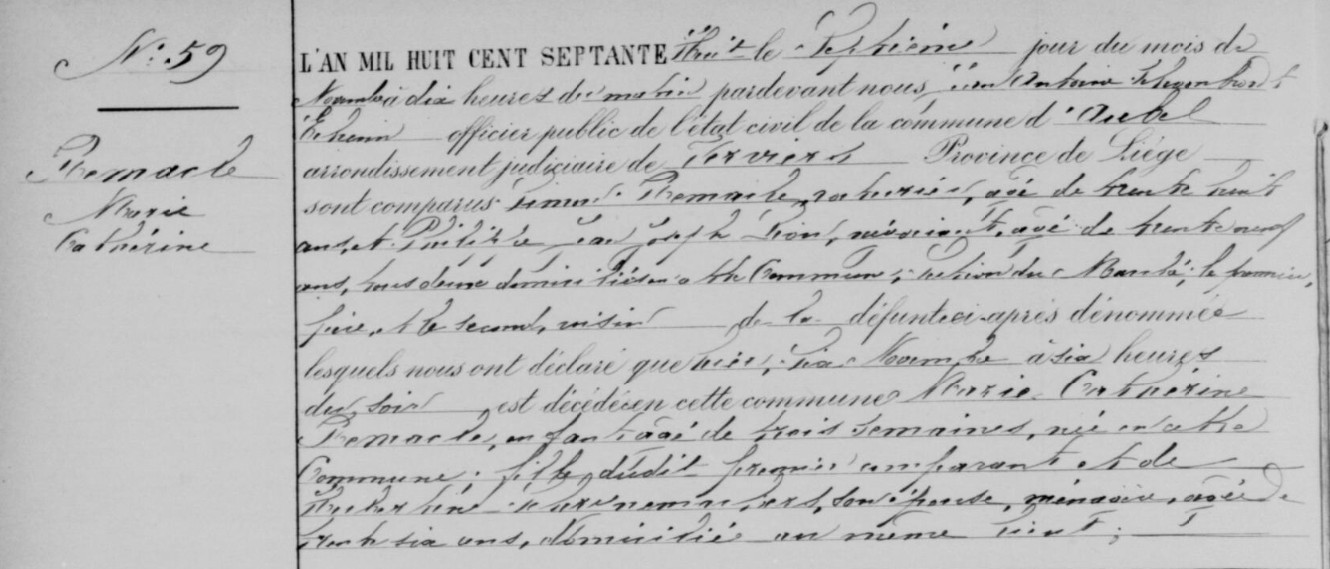 N° 59
Remacle
Marie
Cathérine
L'AN MIL HUIT CENT SEPTANTE Huit le Septième jour du mois de
Novembre à dix heures du matin pardevant nous, Jean Antoine
officier public de l'état civil de la commune d'Aubel
arrondissement judiciaire de Verviers Province de Liége
sont comparus Remacle, âgé de trente huit
ans, et Jean Joseph négociant, âgé de trente neuf
ans, tous deux domiciliés en cette Commune, section du Marché; le premier,
père, et le second, voisin de la défunte ci-après dénommée
lesquels nous ont déclaré que hier, six Novembre à six heures
du soir, est décédée en cette commune Marie Cathérine
Remacle, enfant âgé de trois semaines, née en cette
Commune; fille dudit premier comparant et de
son épouse, ménagère, âgée de
trente six ans, domiciliée au même lieu;